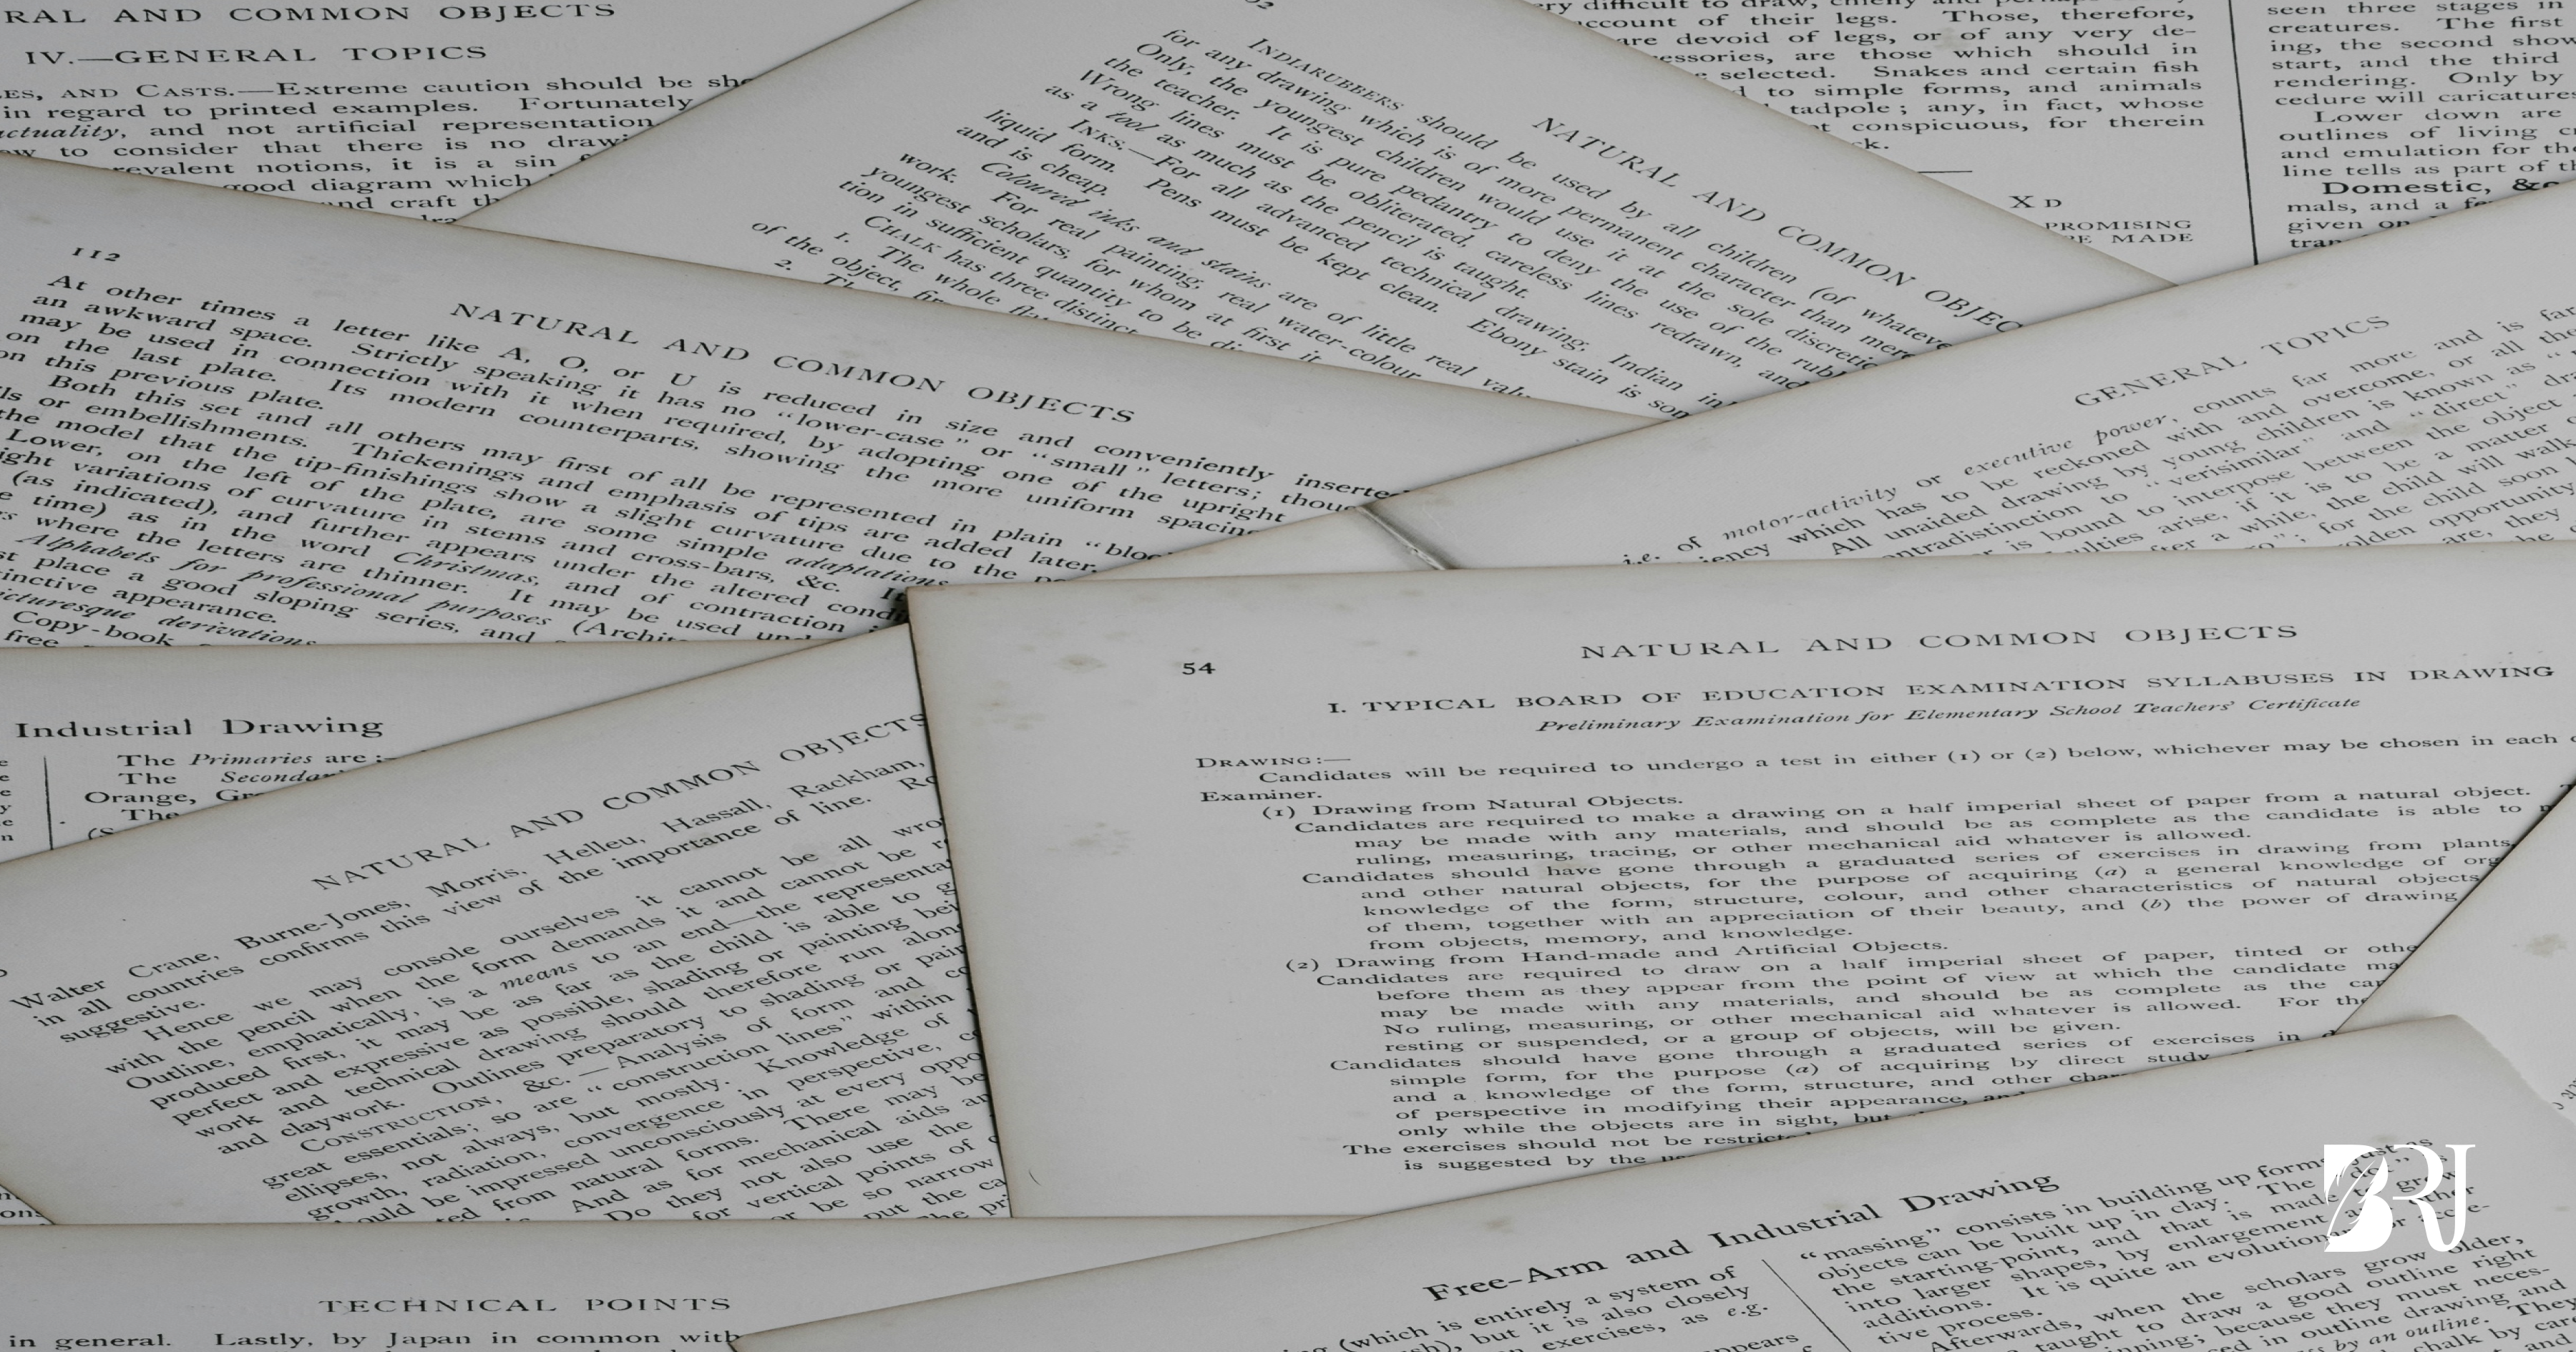 RAL AND COMMON OBJECTS
IV.—GENERAL TOPICS
ES, AND CASTS.—Extreme caution should be sho
in regard to printed examples. Fortunately
actuality, and not artificial representation
ow to consider that there is no drawi
revalent notions, it is a sin
good diagram which
und craft th
INDIARUBBERS should be used by all children (of whateve
for any drawing which is of more permanent character than mere
Only, the youngest children would use it at the sole discretio
the teacher. It is pure pedantry to deny the use of the rubb
Wrong lines must be obliterated, careless lines redrawn, and
as a tool as much as the pencil is taught.
INKS.—For all advanced technical drawing, Indian in
liquid form. Pens must be kept clean. Ebony stain is som
and is cheap.
Coloured inks and stains are of little real valu
work. For real painting, real water-colour
youngest scholars, for whom at first it
tion in sufficient quantity to be di
CHALK has three distinct
1. The whole
of the object,
2. Th
NATURAL AND COMMON OBJEC
ry difficult to draw, chiefly and perhaps
account of their legs. Those, therefore,
are devoid of legs, or of any very de-
essories, are those which should in
e selected. Snakes and certain fish
d to simple forms, and animals
tadpole; any, in fact, whose
ot conspicuous, for therein
ck.
X D
PROMISING
BE MADE
seen three stages in
creatures. The first
ing, the second show
start, and the third
rendering. Only by
cedure will caricatures
Lower down are
outlines of living cr
and emulation for the
line tells as part of th
Domestic, &c
mals, and a fe
given on
tran
112
NATURAL AND COMMON OBJECTS
At other times a letter like A, O, or U is reduced in size and conveniently inserted
an awkward space. Strictly speaking it has no "lower-case" or "small" letters; thoug
may be used in connection with it when required, by adopting one of the upright
on the last plate. Its modern counterparts, showing the more uniform spacing
on this previous plate.
Both this set and all others may first of all be represented in plain "bloc
ls or embellishments. Thickenings and emphasis of tips are added later.
the model that the tip-finishings show a slight curvature due to the pe
Lower, on the left of the plate, are some simple adaptations
ight variations of curvature in stems and cross-bars, &c. It
(as indicated), and further appears under the altered condi
e time) as in the word Christmas, and of contraction
rs where the letters are thinner. It may be used und
Alphabets for professional purposes (Archite
st place a good sloping series, and
inctive appearance.
icturesque derivations
Copy-book
free
GENERAL TOPICS
i.e. of motor-activity or executive power, counts far more and is far
iency which has to be reckoned with and overcome, or all the
All unaided drawing by young children is known as "
ontradistinction to "verisimilar" and "direct" dra
r is bound to interpose between the object
ulties arise, if it is to be a matter
fter a while, the child will walk
go"; for the child soon
olden opportunity
are, they
Industrial Drawing
The Primaries are:—
The Secondar
Orange, Gre
The
NATURAL AND COMMON OBJECTS
Walter Crane, Burne-Jones, Morris, Helleu, Hassall, Rackham,
in all countries confirms this view of the importance of line. Ro
suggestive.
Hence we may console ourselves it cannot be all wro
with the pencil when the form demands it and cannot be re
Outline, emphatically, is a means to an end—the representa
produced first, it may be as far as the child is able to g
perfect and expressive as possible, shading or painting bei
work and technical drawing should therefore run along
and claywork. Outlines preparatory to shading or pain
CONSTRUCTION, &c.—Analysis of form and co
great essentials; so are "construction lines" within
ellipses, not always, but mostly. Knowledge of
growth, radiation, convergence in perspective, c
ould be impressed unconsciously at every oppo
ted from natural forms. There may be
And as for mechanical aids an
Do they not also use the
for vertical points of
or be so narrow
put the ca
The pri
54
NATURAL AND COMMON OBJECTS
I. TYPICAL BOARD OF EDUCATION EXAMINATION SYLLABUSES IN DRAWING
Preliminary Examination for Elementary School Teachers' Certificate
DRAWING:—
Candidates will be required to undergo a test in either (1) or (2) below, whichever may be chosen in each c
Examiner.
(1) Drawing from Natural Objects.
Candidates are required to make a drawing on a half imperial sheet of paper from a natural object. T
may be made with any materials, and should be as complete as the candidate is able to m
ruling, measuring, tracing, or other mechanical aid whatever is allowed.
Candidates should have gone through a graduated series of exercises in drawing from plants,
and other natural objects, for the purpose of acquiring (a) a general knowledge of org
knowledge of the form, structure, colour, and other characteristics of natural objects
of them, together with an appreciation of their beauty, and (b) the power of drawing
from objects, memory, and knowledge.
(2) Drawing from Hand-made and Artificial Objects.
Candidates are required to draw on a half imperial sheet of paper, tinted or othe
before them as they appear from the point of view at which the candidate ma
may be made with any materials, and should be as complete as the can
No ruling, measuring, or other mechanical aid whatever is allowed. For the
resting or suspended, or a group of objects, will be given.
Candidates should have gone through a graduated series of exercises in d
simple form, for the purpose (a) of acquiring by direct study
and a knowledge of the form, structure, and other char
of perspective in modifying their appearance, an
only while the objects are in sight, but
The exercises should not be restricted
is suggested by the
TECHNICAL POINTS
in general. Lastly, by Japan in common with
Free-Arm and Industrial Drawing
(which is entirely a system of
sh), but it is also closely
exercises, as e.g.
appears
"massing" consists in building up forms just as
objects can be built up in clay. The "dot" is
the starting-point, and that is made to grow
into larger shapes, by enlargement and other
additions. It is quite an evolutionary or accre-
tive process.
Afterwards, when the scholars grow older,
taught to draw a good outline right
inning; because they must neces-
ed in outline drawing and
s by an outline. They
chalk by care
BRJ